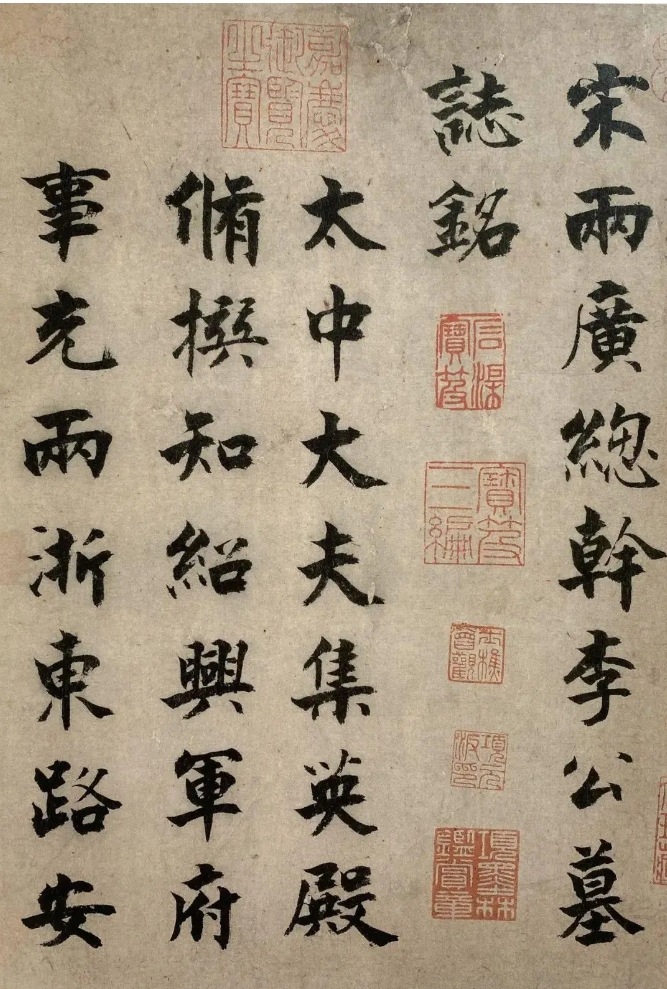 宋兩廣緫幹李公墓
誌銘
石渠寶笈
寶笈三編
項元汴印
項墨林鑑賞章
嘉慶御覽之寶
太中大夫集英殿
脩撰知紹興軍府
事充兩浙東路安